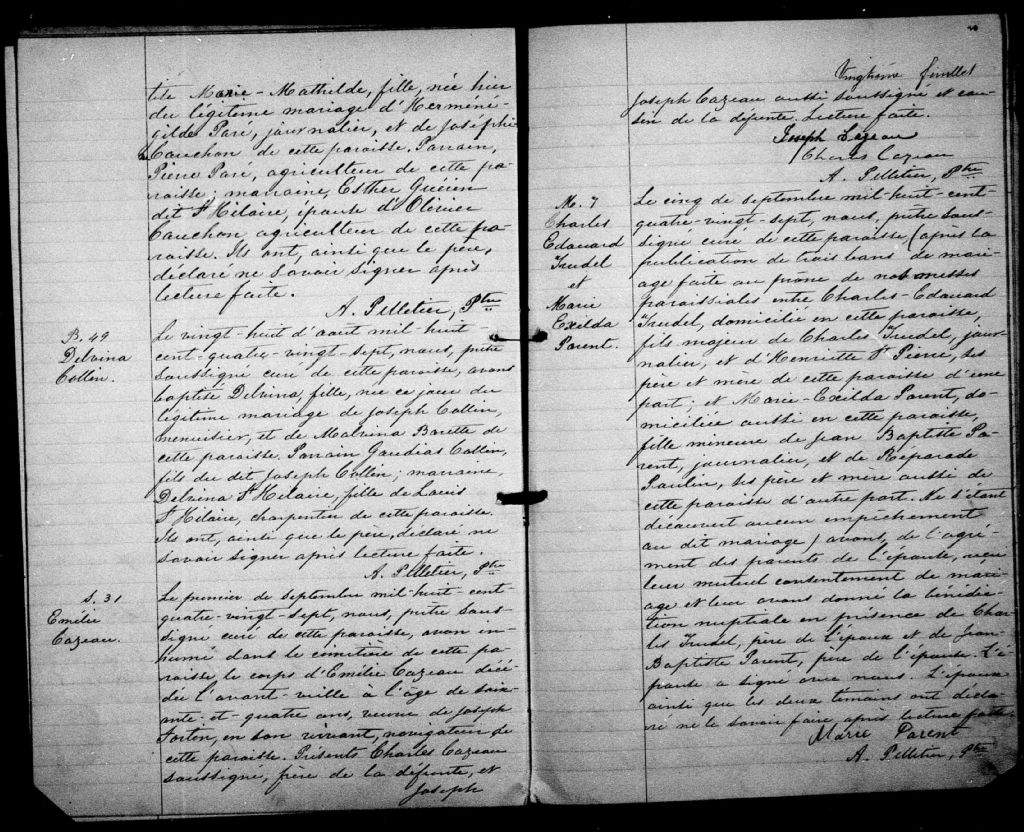 tisé Marie-Mathilde, fille, née hier
du légitime mariage d'Herméné-
gilde Paré, journalier, et de Joséphine
Cauchon de cette paroisse. Parrain,
Pierre Paré, agriculteur de cette pa-
roisse; marraine, Esther Guérin
dit St Hilaire, épouse d'Olivier
Cauchon, agriculteur de cette pa-
roisse. Ils ont, ainsi que le père,
déclaré ne savoir signer après
lecture faite.
A. Pelletier, Ptre
B. 49
Delvina
Collin.
Le vingt-huit d'août mil-huit-
cent-quatre-vingt-sept, nous, prêtre
soussigné curé de cette paroisse, avons
baptisé Delvina, fille, née ce jour du
légitime mariage de Joseph Collin,
menuisier, et de Malvina Barette de
cette paroisse. Parrain Gaudias Collin,
fils du dit Joseph Collin; marraine,
Delvina St Hilaire, fille de Louis
St Hilaire, charpentier de cette paroisse.
Ils ont, ainsi que le père, déclaré ne
savoir signer après lecture faite.
A. Pelletier, Ptre
S. 31
Emélie
Cazeau.
Le premier de septembre mil-huit-cent-
quatre-vingt-sept, nous, prêtre sous-
signé curé de cette paroisse, avons in-
humé dans le cimetière de cette pa-
roisse, le corps d'Emélie Cazeau décé-
dée l'avant-veille à l'âge de soix-
ante-et-quatre ans, veuve de Joseph
Fortin, en son vivant, navigateur de
cette paroisse. Présents Charles Cazeau
soussigné, frère de la défunte, et
Joseph
Vingtième feuillet
Joseph Cazeau aussi soussigné et cou-
sin de la défunte. Lecture faite.
Joseph Cazeau
Charles Cazeau
A. Pelletier, Ptre
M. 7
Charles
Edouard
Trudel
et
Marie
Exilda
Parent.
Le cinq de septembre mil-huit-cent-
quatre-vingt-sept, nous, prêtre sous-
signé curé de cette paroisse (après la
publication de trois bans de mari-
age faite au prône de nos messes
paroissiales entre Charles-Edouard
Trudel, domicilié en cette paroisse,
fils majeur de Charles Trudel, jour-
nalier, et d'Henriette St Pierre, ses
père et mère de cette paroisse d'une
part; et Marie-Exilda Parent, do-
miciliée aussi en cette paroisse,
fille mineure de Jean Baptiste Pa-
rent, journalier, et de Réparade
Paulin, ses père et mère aussi de
cette paroisse d'autre part. Ne s'étant
découvert aucun empêchement
au dit mariage) avons, de l'agré-
ment des parents de l'épouse, reçu
leur mutuel consentement de mari-
age et leur avons donné la bénédic-
tion nuptiale en présence de Char-
les Trudel, père de l'époux et de Jean-
Baptiste Parent, père de l'épouse. L'é-
pouse a signé avec nous. L'époux
ainsi que les deux témoins ont décla-
ré ne le savoir faire, après lecture faite.
Marie Parent
A. Pelletier, Ptre